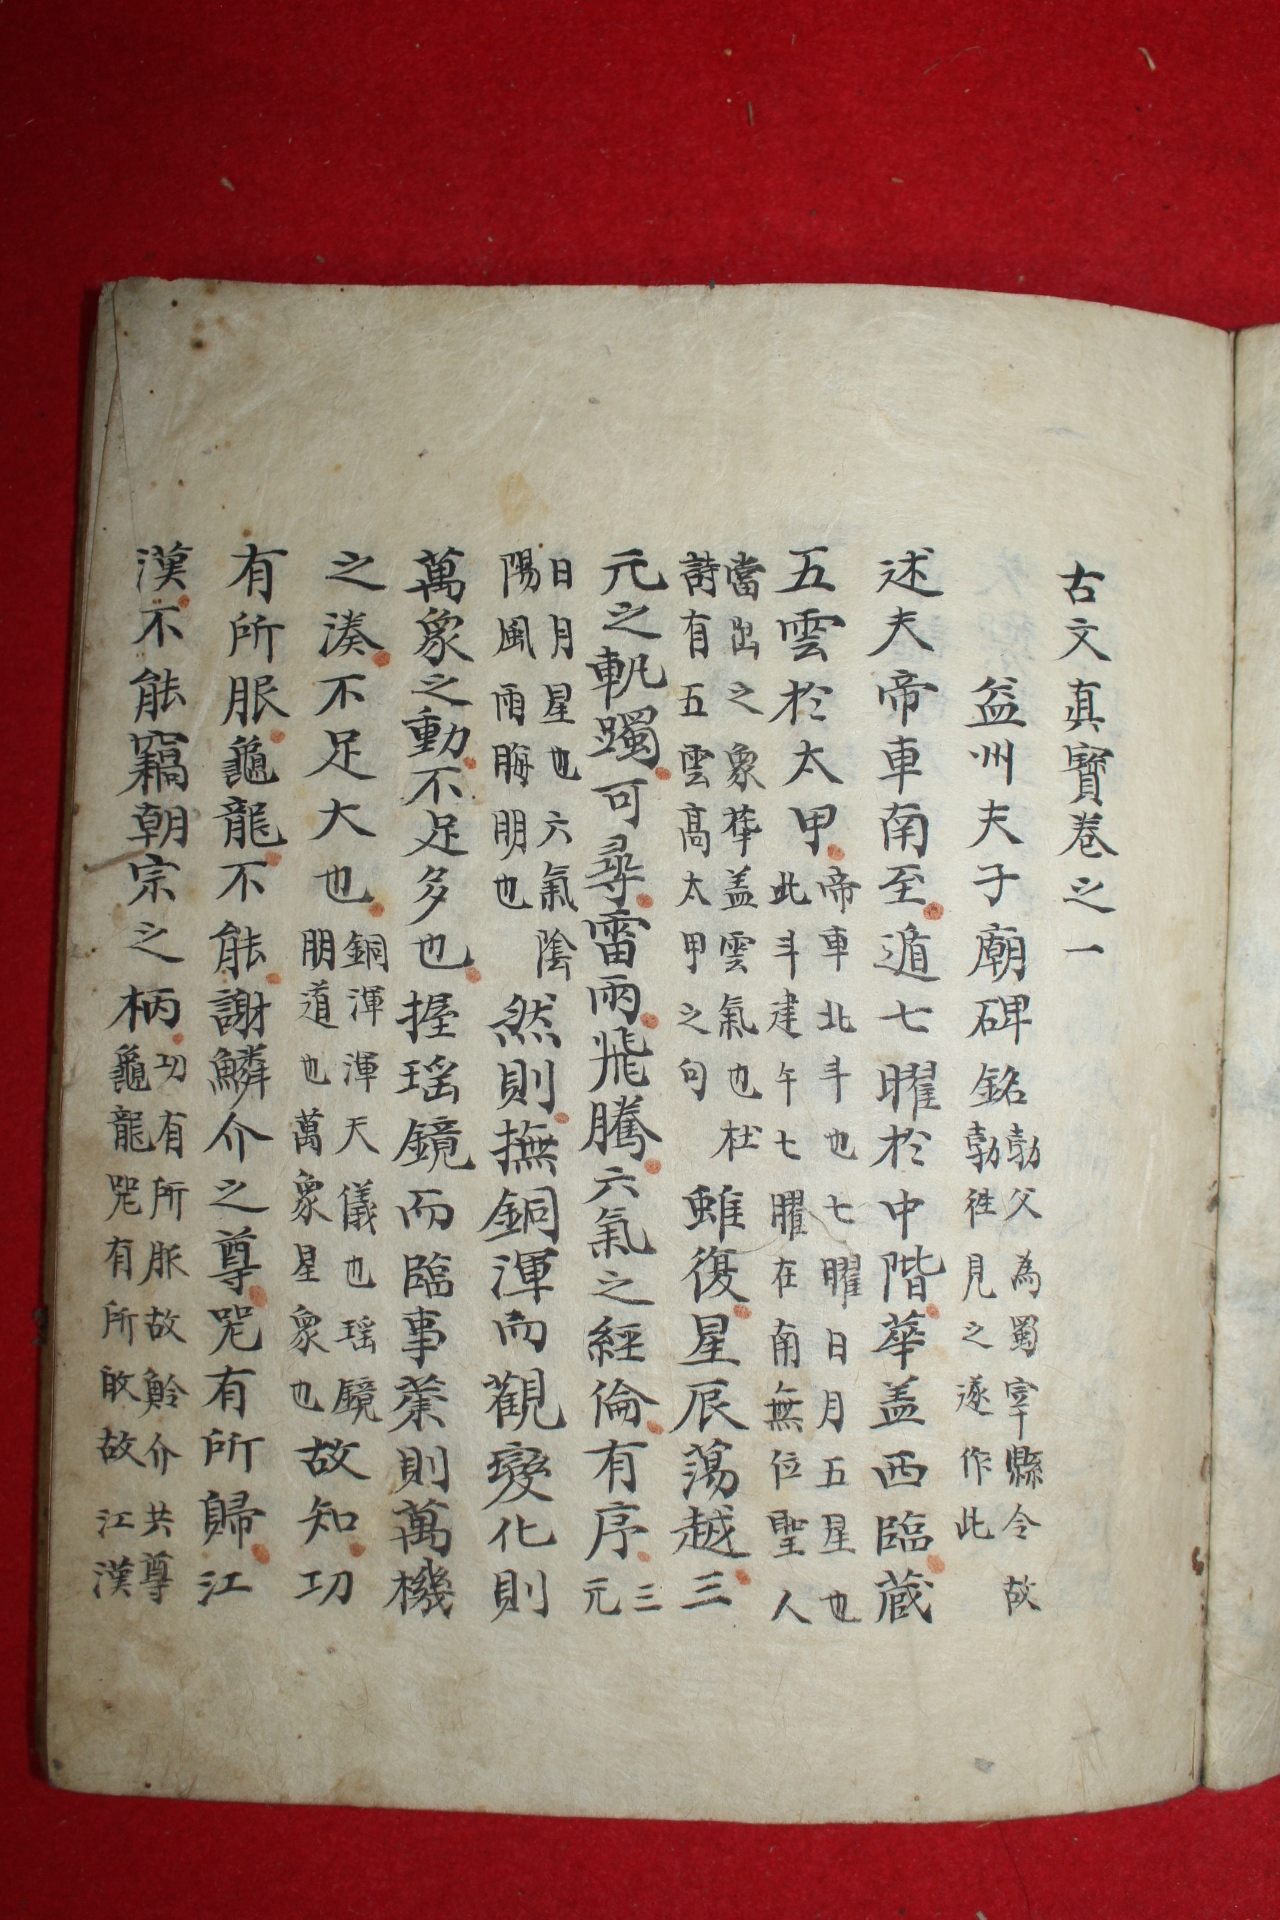 古文真寶卷之一
益州夫子廟碑銘勃父為蜀宰縣令故勃徃見之遂作此
述夫帝車南至遁七曜於中階華盖西臨蔵
五雲於太甲帝車北斗也七曜日月五星也此斗建午七曜在南無位聖人
當出之象華盖雲氣也杜詩有五雲高太甲之句雖復星辰蕩越三
元之軌躅可尋雷雨飛騰六氣之經倫有序三元
日月星也六氣陰陽風雨晦明也然則撫銅渾而觀變化則
萬象之動不足多也握瑶鏡而臨事業則萬機
之湊不足大也銅渾渾天儀也瑶鏡明道也萬象星象也故知功
有所服龜龍不能謝鱗介之尊咒有所歸江
漢不能竊朝宗之柄功有所服故鱗介共尊龜龍咒有所故江漢